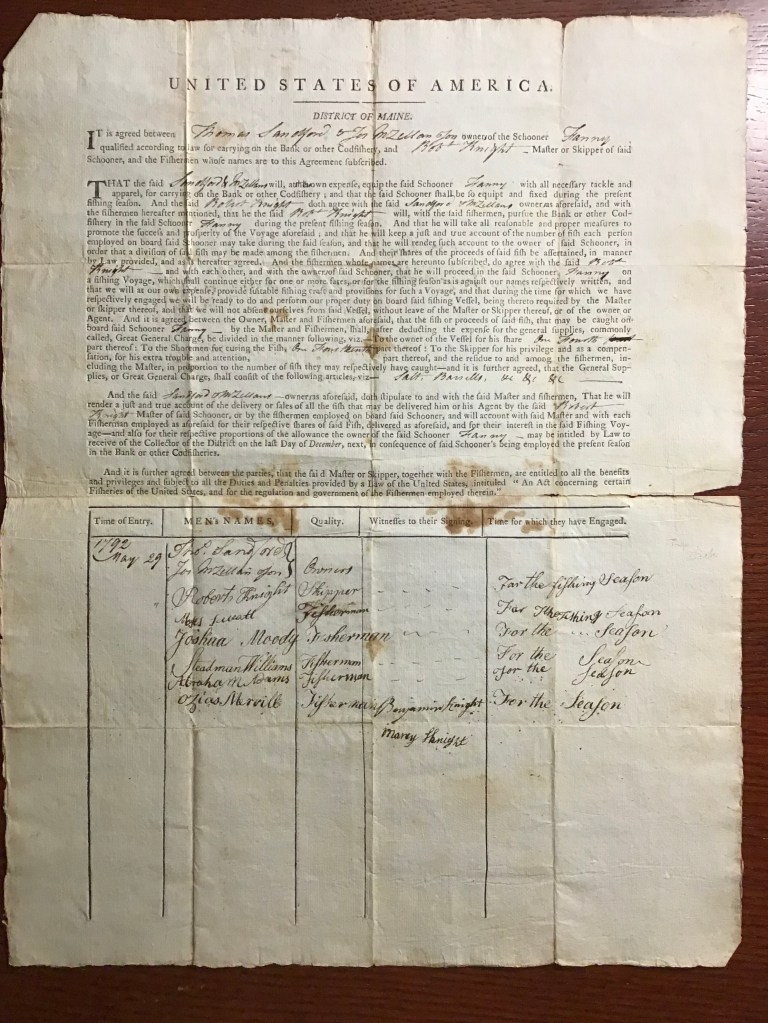 UNITED STATES OF AMERICA.
DISTRICT OF MAINE.
IT is agreed between Thomas Sandford & Jos McLellan owner of the Schooner Fanny
qualified according to law for carrying on the Bank or other Codfishery, and Robt Knight Master or Skipper of said
Schooner, and the Fishermen whose names are to this Agreement subscribed.
THAT the said Sandford & McLellan will, at own expense, equip the said Schooner Fanny with all necessary tackle and
apparel, for carrying on the Bank or other Codfishery; and that the said Schooner shall be so equipt and fixed during the present
fishing season. And the said Robert Knight doth agree with the said Sandford McLellan owner as aforesaid, and with
the fishermen hereafter mentioned, that he the said Robt Knight will, with the said fishermen, pursue the Bank or other Cod-
fishery in the said Schooner Fanny during the present fishing season. And that he will take all reasonable and proper measures to
promote the success and prosperity of the Voyage aforesaid; and that he will keep a just and true account of the number of fish each person
employed on board said Schooner may take during the said season, and that he will render such account to the owner of said Schooner, in
order that a division of said fish may be made among the fishermen. And their shares of the proceeds of said fish be ascertained, in manner
by Law provided, and as is hereafter agreed. And the fishermen whose names are hereunto subscribed, do agree with the said Robt
Knight and with each other, and with the owner of said Schooner, that he will proceed in the said Schooner, Fanny on
a fishing Voyage, which shall continue either for one or more fares, or for the fishing season as is against our names respectively written, and
that we will at our own expense, provide suitable fishing craft and provisions for such a Voyage, and that during the time for which we have
respectively engaged we will be ready to do and perform our proper duty on board said fishing Vessel, being thereto required by the Master
or skipper thereof, and that we will not absent ourselves from said Vessel, without leave of the Master or Skipper thereof, or of the owner or
Agent. And it is agreed between the Owner, Master and Fishermen aforesaid, that the fish or proceeds of said fish, that may be caught on
board said Schooner Fanny by the Master and Fishermen, shall, after deducting the expense for the general supplies, commonly
called, Great General Charge, be divided in the manner following, viz.—To the owner of the Vessel for his share One Fourth
part thereof: To the Shoreman for curing the Fish, One part thereof: To the Skipper for his privilege and as a compen-
sation, for his extra trouble and attention, part thereof, and the residue to and among the fishermen, in-
cluding the Master, in proportion to the number of fish they may respectively have caught—and it is further agreed, that the General Sup-
plies, or Great General Charge, shall consist of the following articles, viz— Salt, Barrells, &c &c &c
And the said Sandford McLellan owner as aforesaid, doth stipulate to and with the Master and said fishermen, That he will
render a just and true account of the delivery or sales of all the fish that may be delivered him or his Agent by the said Robert
Knight Master of said Schooner, or by the fishermen employed on board said Schooner, and will account with said Master and with each
Fisherman employed as aforesaid for their respective shares of said Fish, delivered as aforesaid, and for their interest in the said Fishing Voy-
age—and also for their respective proportions of the allowance the owner of the said Schooner Fanny may be intitled by Law to
receive of the Collector of the District on the last Day of December, next, in consequence of said Schooner's being employed the present season
in the Bank or other Codfisheries.
And it is further agreed between the parties, that the said Master or Skipper, together with the Fishermen, are entitled to all the benefits
and privileges and subject to all the Duties and Penalties provided by a Law of the United States, intituled "An Act concerning certain
Fisheries of the United States, and for the regulation and government of the Fishermen employed therein."
Time of Entry. MEN's NAMES. Quality. Witnesses to their Signing. Time for which they have Engaged.
1792
May 29 Thos. Sandford
Jos McLellan Owners
Roberts Knight Skipper For the Fishing Season
Fisherman For The Fishing Season
Joshua Moody Fisherman For the Season
Steadman Williams Fisherman For the Season
Abraham Adams Fisherman for the Season
Ozias Merrill Fisherman Benjamin Knight For the Season
Marcy Knight